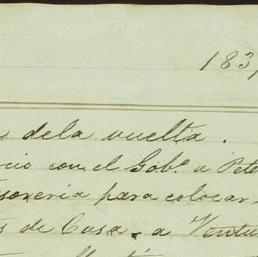 183
dela vuelta.
con el Gobo. a Pete
soreria para colocar
de Casa, a Ventu